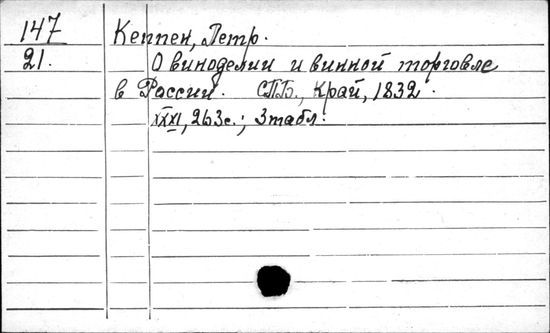 147 Кеппен, Петр.
21. О виноделии и винной торговле
в России. СПБ., Край, 1832.
XXXI, 263с.; 3 табл.